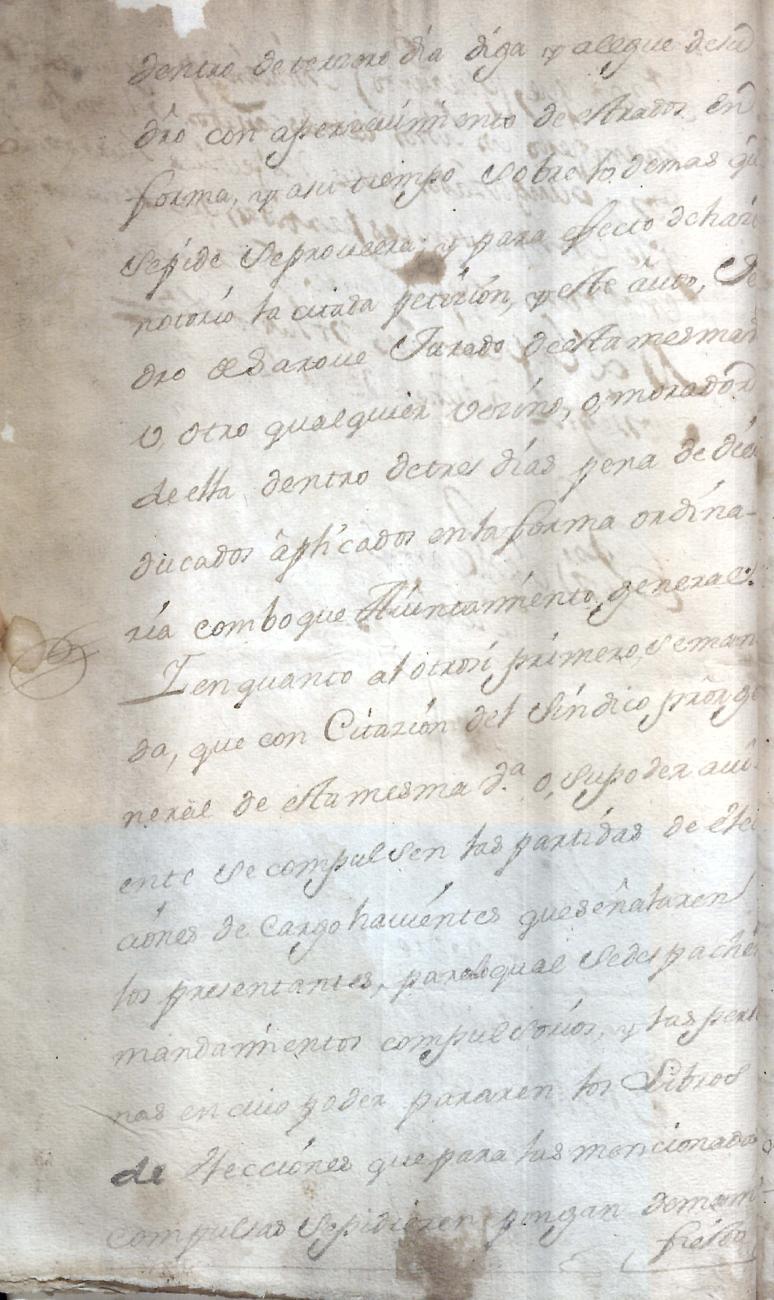 dentro de terzero dia diga y alegue de su
dro con apercivimiento de estrados en
forma, y a su tiempo sobre lo demas qu
se pide se proveera; y para efecto de haze
notorio la citada peticion, y este auto, Se
dro de Jurado de esta mesma
v, otro qualquier vezino, o, morador
de ella dentro de tres dias pena de die
ducados aplicados en la forma ordina-
ria comboque Aiuntamiento general.
I en quanto al otrosi primero, se man
da, que con Citazion del Sindico pror ge
neral de esta mesma d.a o, su poder avi
ente se compulsen las partidas de ele
ciones de Cargo havientes que señalaren
los presentantes, para lo qual se despache
mandamientos compulsorios, y las perso
nas en cuio poder pararen los Libros
de elecciones que para las mencionadas
compulsas se pidieren pongan de mani
fiesto